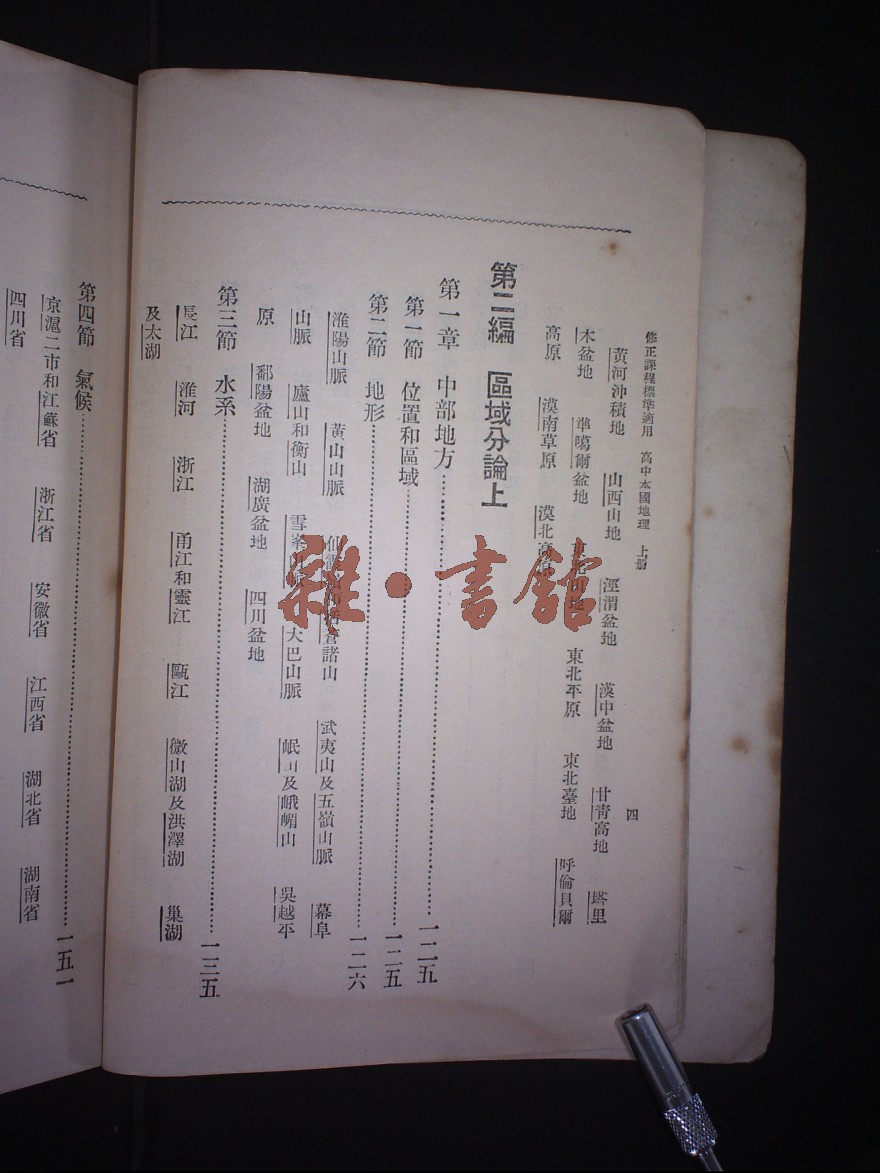 修正課程標準適用 高中本國地理 上册
四
黃河沖積地 山西山地 涇渭盆地 漢中盆地 甘靑高地 塔里
木盆地 準噶爾盆地 東北山地 東北平原 東北臺地 呼倫貝爾
高原 漠南草原 漠北高原
第二編 區域分論上
第一章 中部地方 一二五
第一節 位置和區域 一二五
第二節 地形 一二六
淮陽山脈 黃山山脈 諸山 武夷山及五嶺山脈 幕阜
山脈 廬山和衡山 雪峯山脈 大巴山脈 岷山及峨嵋山 吳越平
原 鄱陽盆地 湖廣盆地 四川盆地
第三節 水系 一三五
長江 淮河 浙江 甬江和靈江 甌江 微山湖及洪澤湖 巢湖
及太湖
第四節 氣候 一五一
京滬二市和江蘇省 浙江省 安徽省 江西省 湖北省 湖南省
四川省
雜·書館